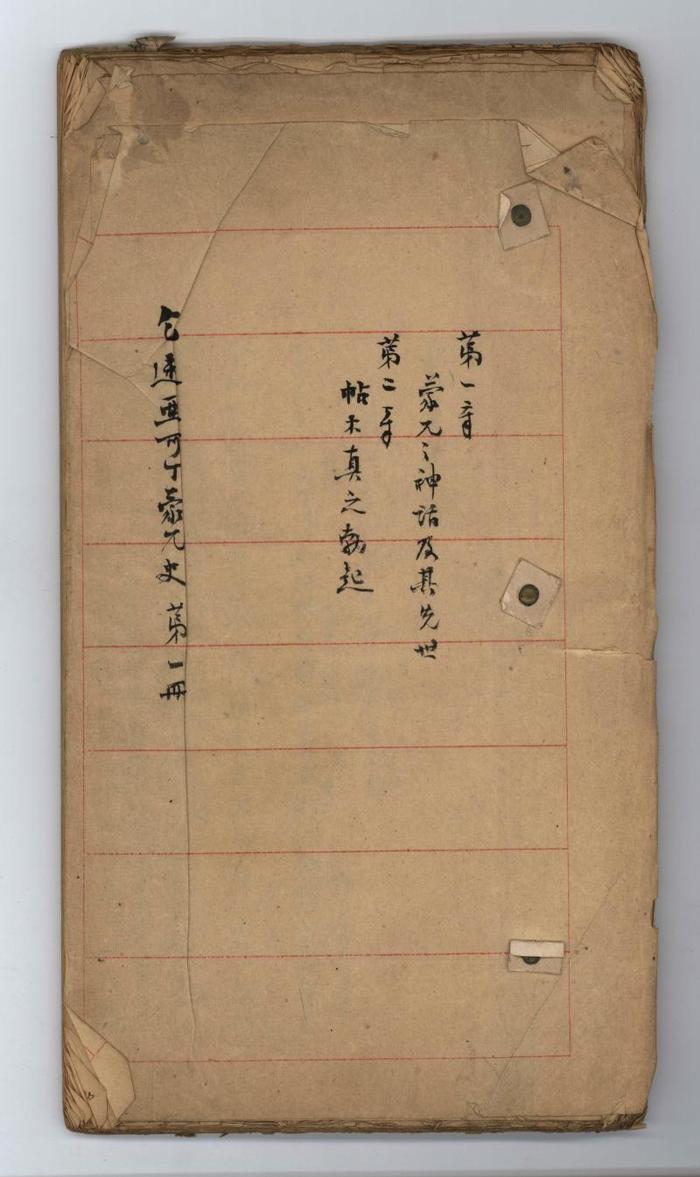 第一章
蒙兀之神話及其先世
第二章
帖木真之勃起
乞亞可丁蒙兀史 第一冊